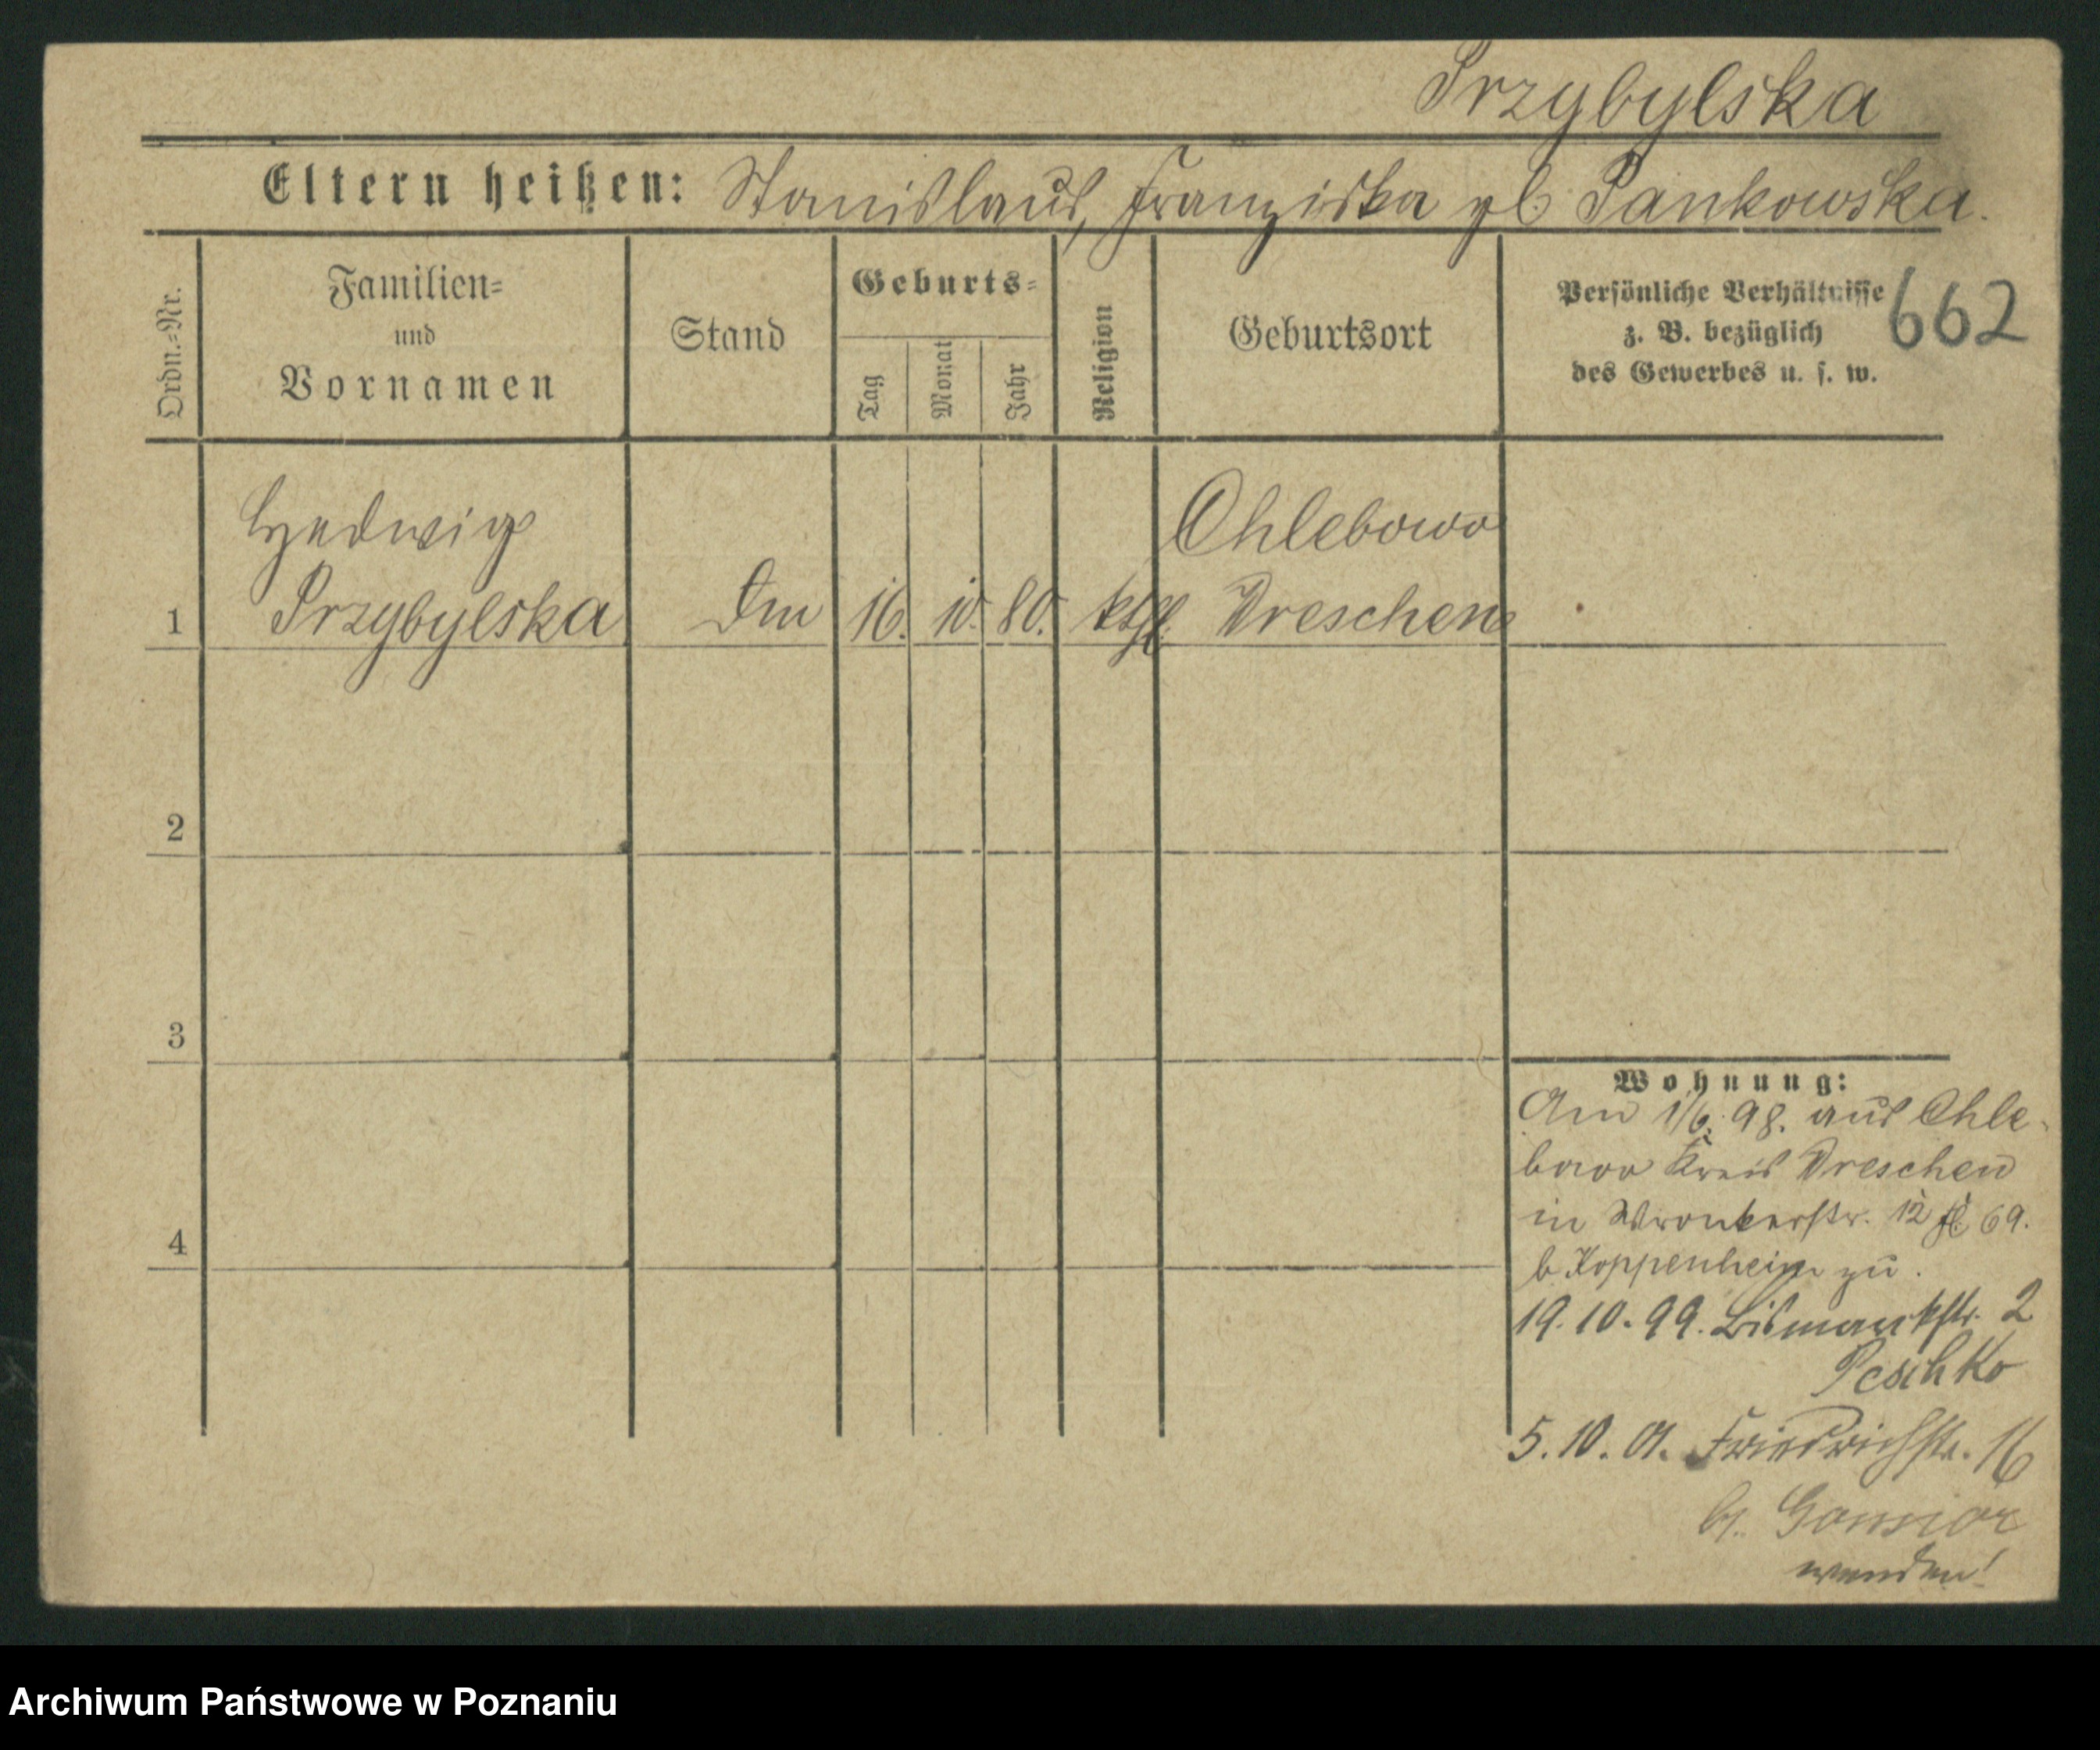 Przybylska
Eltern heißen: Stanislaus, Franziska gb Pankowska.
Ordn.-Nr.
Familien=
und
Vornamen
Stand
Geburts=
Tag
Monat
Jahr
Religion
Geburtsort
Persönliche Verhältnisse
z. B. bezüglich
des Gewerbes u. s. w.
662
Hedwig
Chlebowo
1 Przybylska 16. 10. 80. kthl. Wreschen
2
3
4
Wohnung:
Am 1/6. 98. aus Chle-
bowo Kreis Wreschen
in Wronkerstr. 12 69.
b. Koppenheim zu.
19.10.99. Bismarckstr. 2
Peschko
5.10.01. Friedrichstr. 16
b.
wenden!
Archiwum Państwowe w Poznaniu